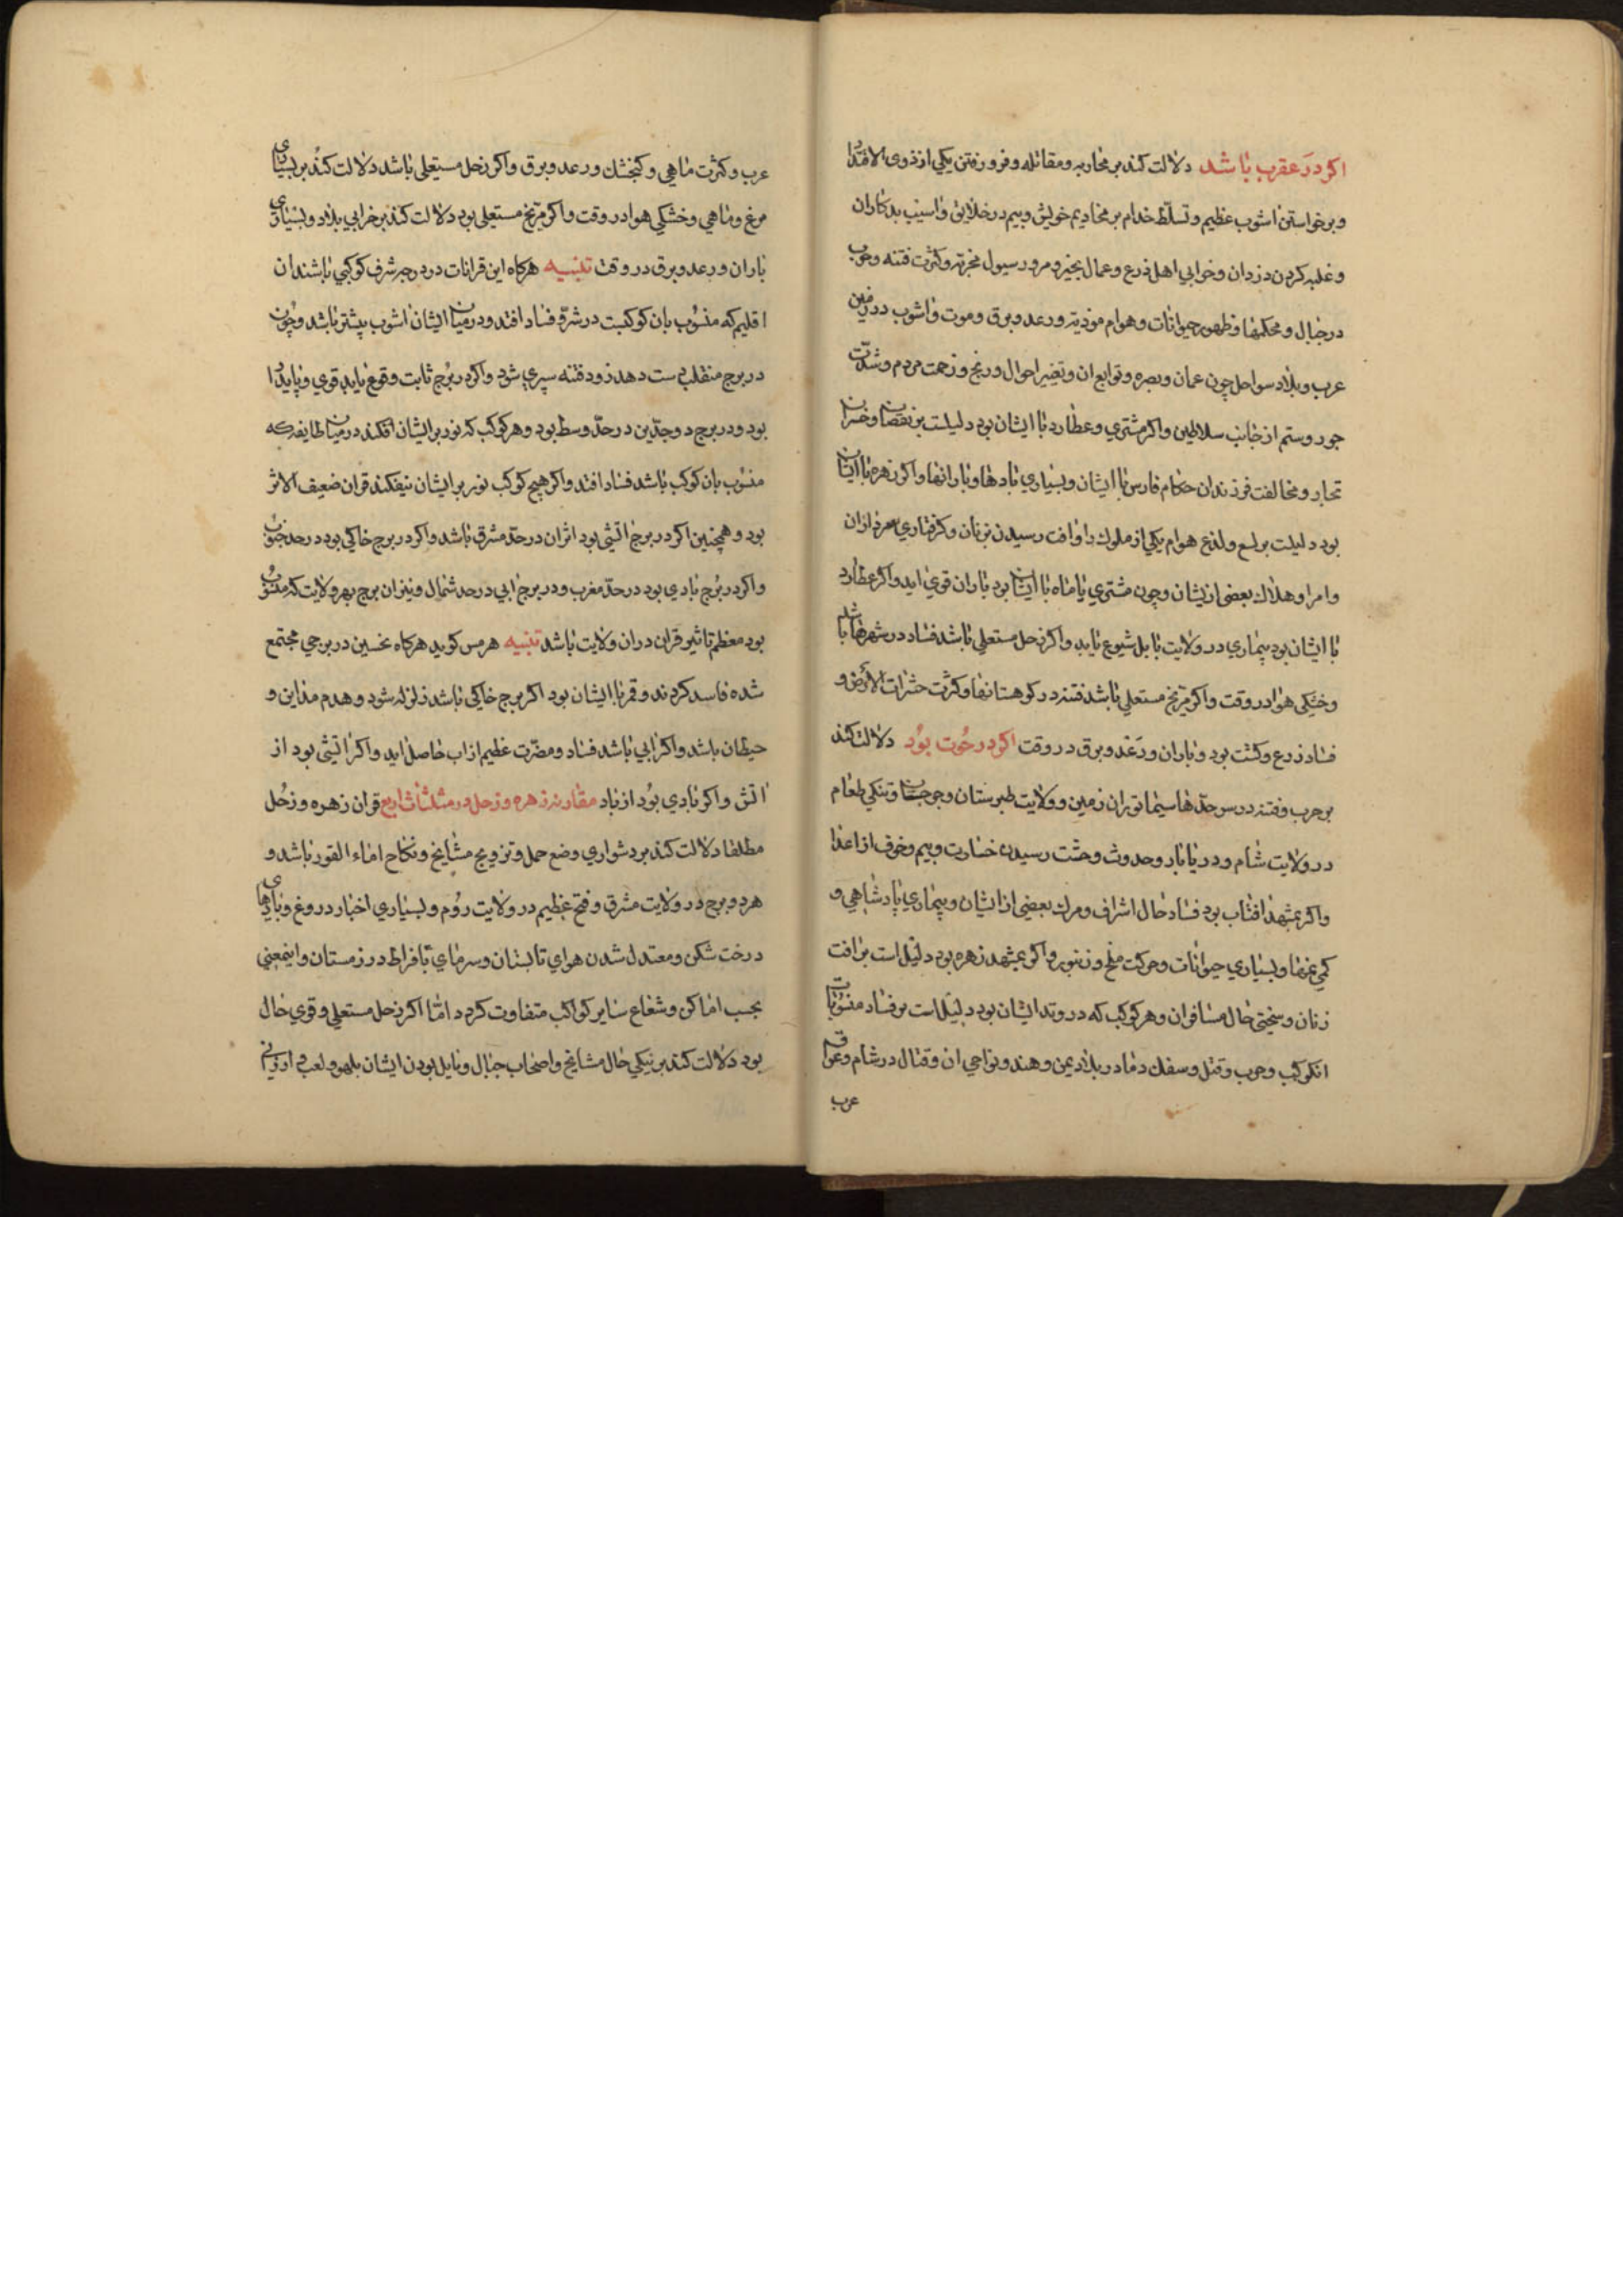 اکر در عقرب باشد دلالت کند بر محاربه و مقاتله و فرو رفتن یکی از ذوی الاقتدا
و برخواستن اشوب عظیم و تسلّط خدام بر مخادیم خویش و بیم در خلایق و اسیب بدکاران
و غلبه کردن دزدان و خرابی اهل زرع و عمال بخیز و مرور سیول مخربه و کثرت فتنه و حرب
در جبال و محکمها و ظهور حیوانات و هوام موذیه و رعد و برق و موت و اشوب در زمین
عرب و بلاد سواحل چون عمان و بصره و توابع ان و تغیر احوال و رنج و زحمت مردم و شدّت
جور و ستم از جانب سلاطین و اکر مشتری و عطارد با ایشان بود دلیلست بر نقصان و خسران
تجار و مخالفت فرزندان حکام فارس با ایشان و بسیاری بادها و بارانها و اکر زهره با ایشان
بود دلیلست بر لسع و لذع هوام یکی از ملوک را و افت رسیدن بزنان و کرفتاری سرداران
و امرا و هلاک بعضی از یشان و چون مشتری یا ماه با ایشان بود باران قوی اید و اکر عطارد
با ایشان بود بیماری در ولایت بابل شیوع یابد و اکر زحل مستعلی باشد فساد در شهرها باشد
و خشکی هوا در وقت و اکر مریخ مستعلی باشد فتنه در کوهستانها و کثرت حشرات الارض و
فساد زرع و کشت بود و باران و رعد و برق در وقت اکر در حوت بود دلالت کند
بر حرب و فتنه در سرحدّها سیما توران زمین و ولایت طبرستان و جرجان و تنکی طعام
در ولایت شام و دریابار و حدوث وحشت رسیدن خسارت و بیم و خوف از اعدا
و اکر بمشهد افتاب بود فساد حال اشراف و مرک بعضی از ایشان و بیماری پادشاهی و
کمی نمها و بسیاری حیوانات و حرکت ملخ و زنبور و اکر بمشهد زهره بود دلیل است بر افت
زنان و سختی حال مسافران و هر کوکب که در وتد ایشان بود دلیل است بر فساد منسوبات
انکوکب و حرب و قتل و سفک دما در بلاد یمن و هند و نواحی ان و قتال در شام و عراق
عرب
عرب و کثرت ماهی و کنجشک و رعد و برق و اکر زحل مستعلی باشد دلالت کند بر بسیاری
مرغ و ماهی و خشکی هوا در وقت و اکر مریخ مستعلی بود دلالت کند بر خرابی بلاد و بسیاری
باران و رعد و برق در وقت تنبیه هرکاه این قرانات در درجه شرف کوکبی باشند ان
اقلیم که منسوب بان کوکبست در شرّ و فساد افتد و در میان ایشان اشوب بیشتر باشد و چون
در برج منقلب دست دهد زود فتنه سپری شود و اکر در برج ثابت وقوع یابد قوی و پایدا
بود و در برج دوجدّین در حدّ وسط بود و هر کوکب که نور بر ایشان افکند در میان طایفه که
منسوب بان کوکب باشد فساد افتد و اکر هیچ کوکب نور بر ایشان نیفکند قران ضعیف الاثر
بود و همچنین اکر در برج اتشی بود اثر ان در حدّ مشرق باشد و اکر در برج خاکی بود در حد جنوب
و اکر در برج بادی بود در حدّ مغرب و در برج ابی در حد شمال و نیز ان برج بهر ولایت که منسوب
بود معظم تاثیر قران در ان ولایت باشد تنبیه هرمس کوید هرکاه نحسین در برجی مجتمع
شده فاسد کردند و قمر با ایشان بود اکر برج خاکی باشد زلزله شود و هدم مداین و
حیطان باشد و اکر ابی باشد فساد و مضرّت عظیم از اب حاصل اید و اکر اتشی بود از
اتش و اکر بادی بود از باد مقارنه زهره و زحل در مثلثات اربع قران زهره و زحل
مطلقا دلالت کند بر دشواری وضع حمل و تزویج مشایخ و نکاح اماء القور باشد و
هرد و برج در ولایت مشرق و فتح عظیم در ولایت روم و بسیاری اخبار دروغ و بادهای
درخت شکن و معتدل شدن هوای تابستان و سرمای بافراط در زمستان و اینمعنی
بحسب اماکن و شعاع سایر کواکب متفاوت کردد امّا اکر زحل مستعلی و قوی حال
بود دلالت کند بر نیکی حال مشایخ و اصحاب جبال و مایل بودن ایشان بلهو و لعب